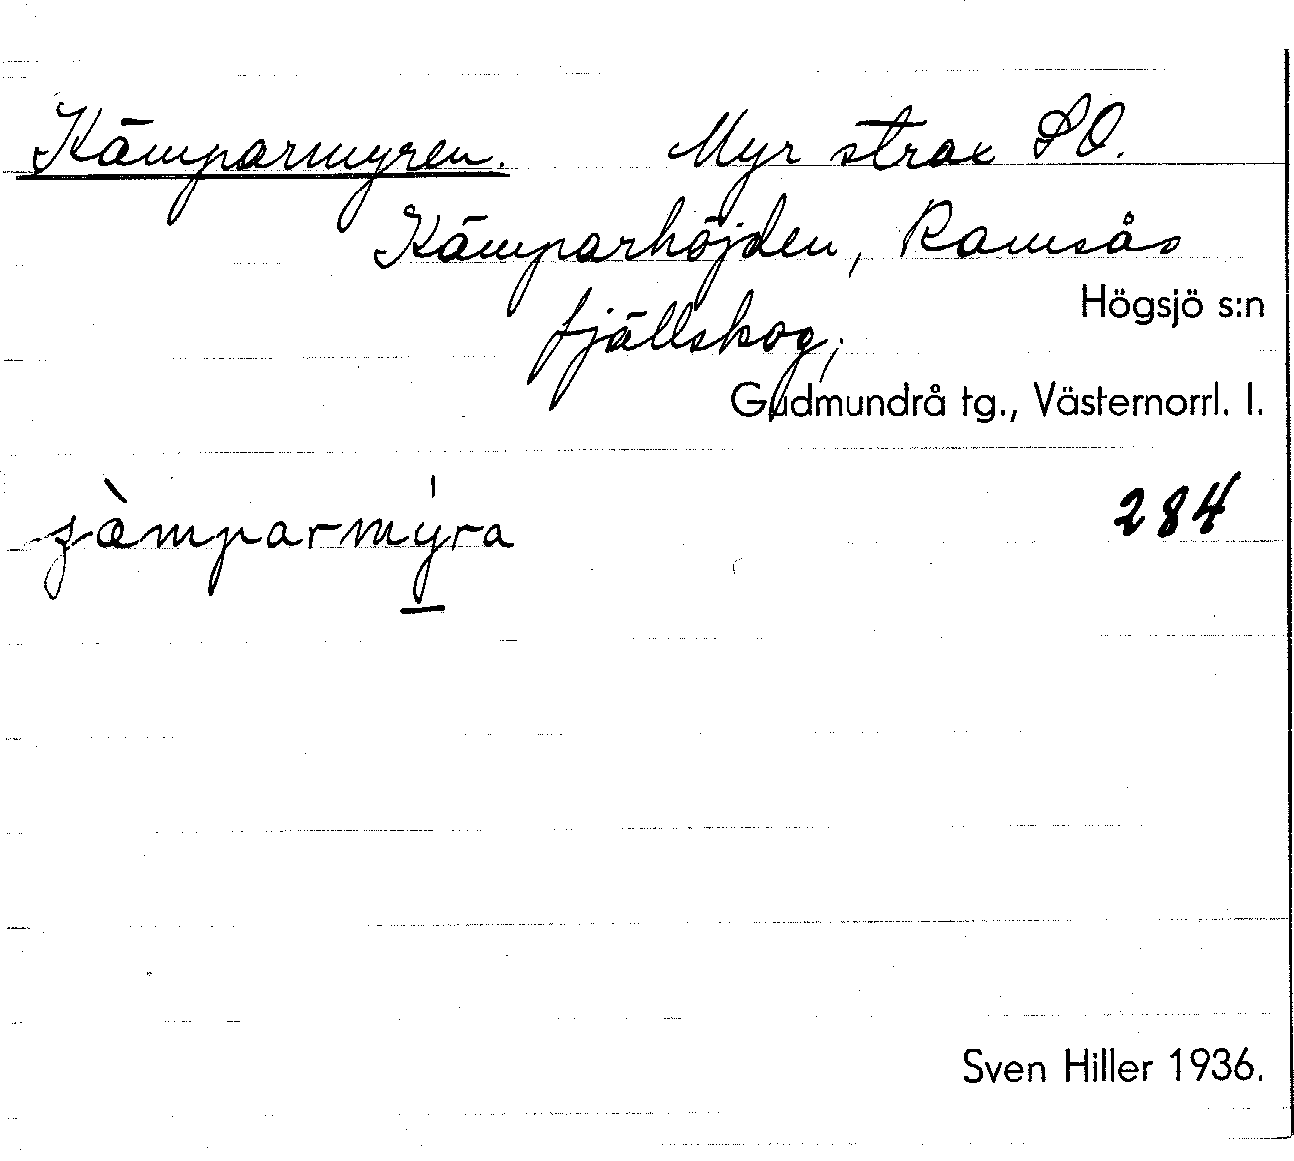 Kämparmyren. Myr strax SO.
Kämparhöjden, Ramsås
Högsjö s:n
fjällskog,
Gudmundrå tg., Västernorrl. l.
jæ̀mparmýra 284
Sven Hiller 1936.